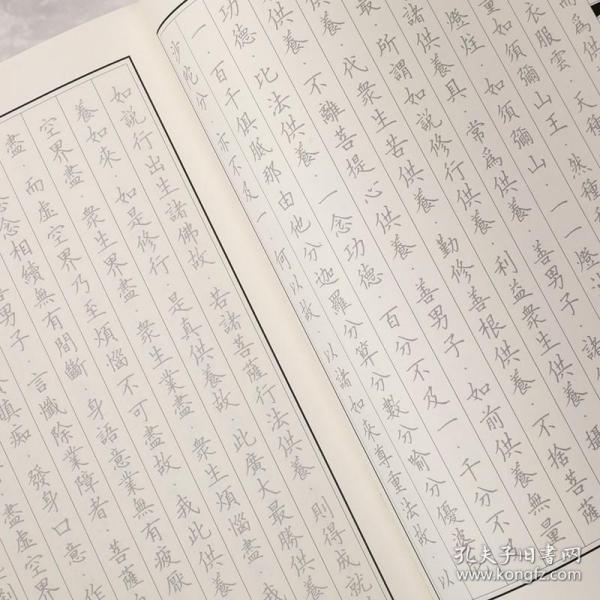 而為供
衣服雲
量如須彌山王·然種種
燈炷·如須彌山·一一燈油
諸供養具·常為供養·善男子·諸供
所謂如說修行供養·利益眾生供養·攝
養·代眾生苦供養·勤修善根供養·不捨菩薩
供養·不離菩提心供養·善男子·如前供養無量
功德·比法供養·一念功德·百分不及一·千分不及
一·百千俱胝那由他分·迦羅分·算分數分·喻分·優婆
沙陀分·亦不及一·何以故·以諸如來尊重法故·以
如說行出生諸佛故·若諸菩薩行法供養·則得成就
養如來·如是修行·是真供養故·此廣大最勝供養
空界盡·眾生界盡·眾生業盡·眾生煩惱盡·我
盡·而虛空界乃至煩惱不可盡故·我此供養
念念相續無有間斷·身語意業無有疲厭
善男子·言懺除業障者·菩薩
瞋癡·發身口意·作
盡虛空界
孔夫子旧书网
www.kongfz.com